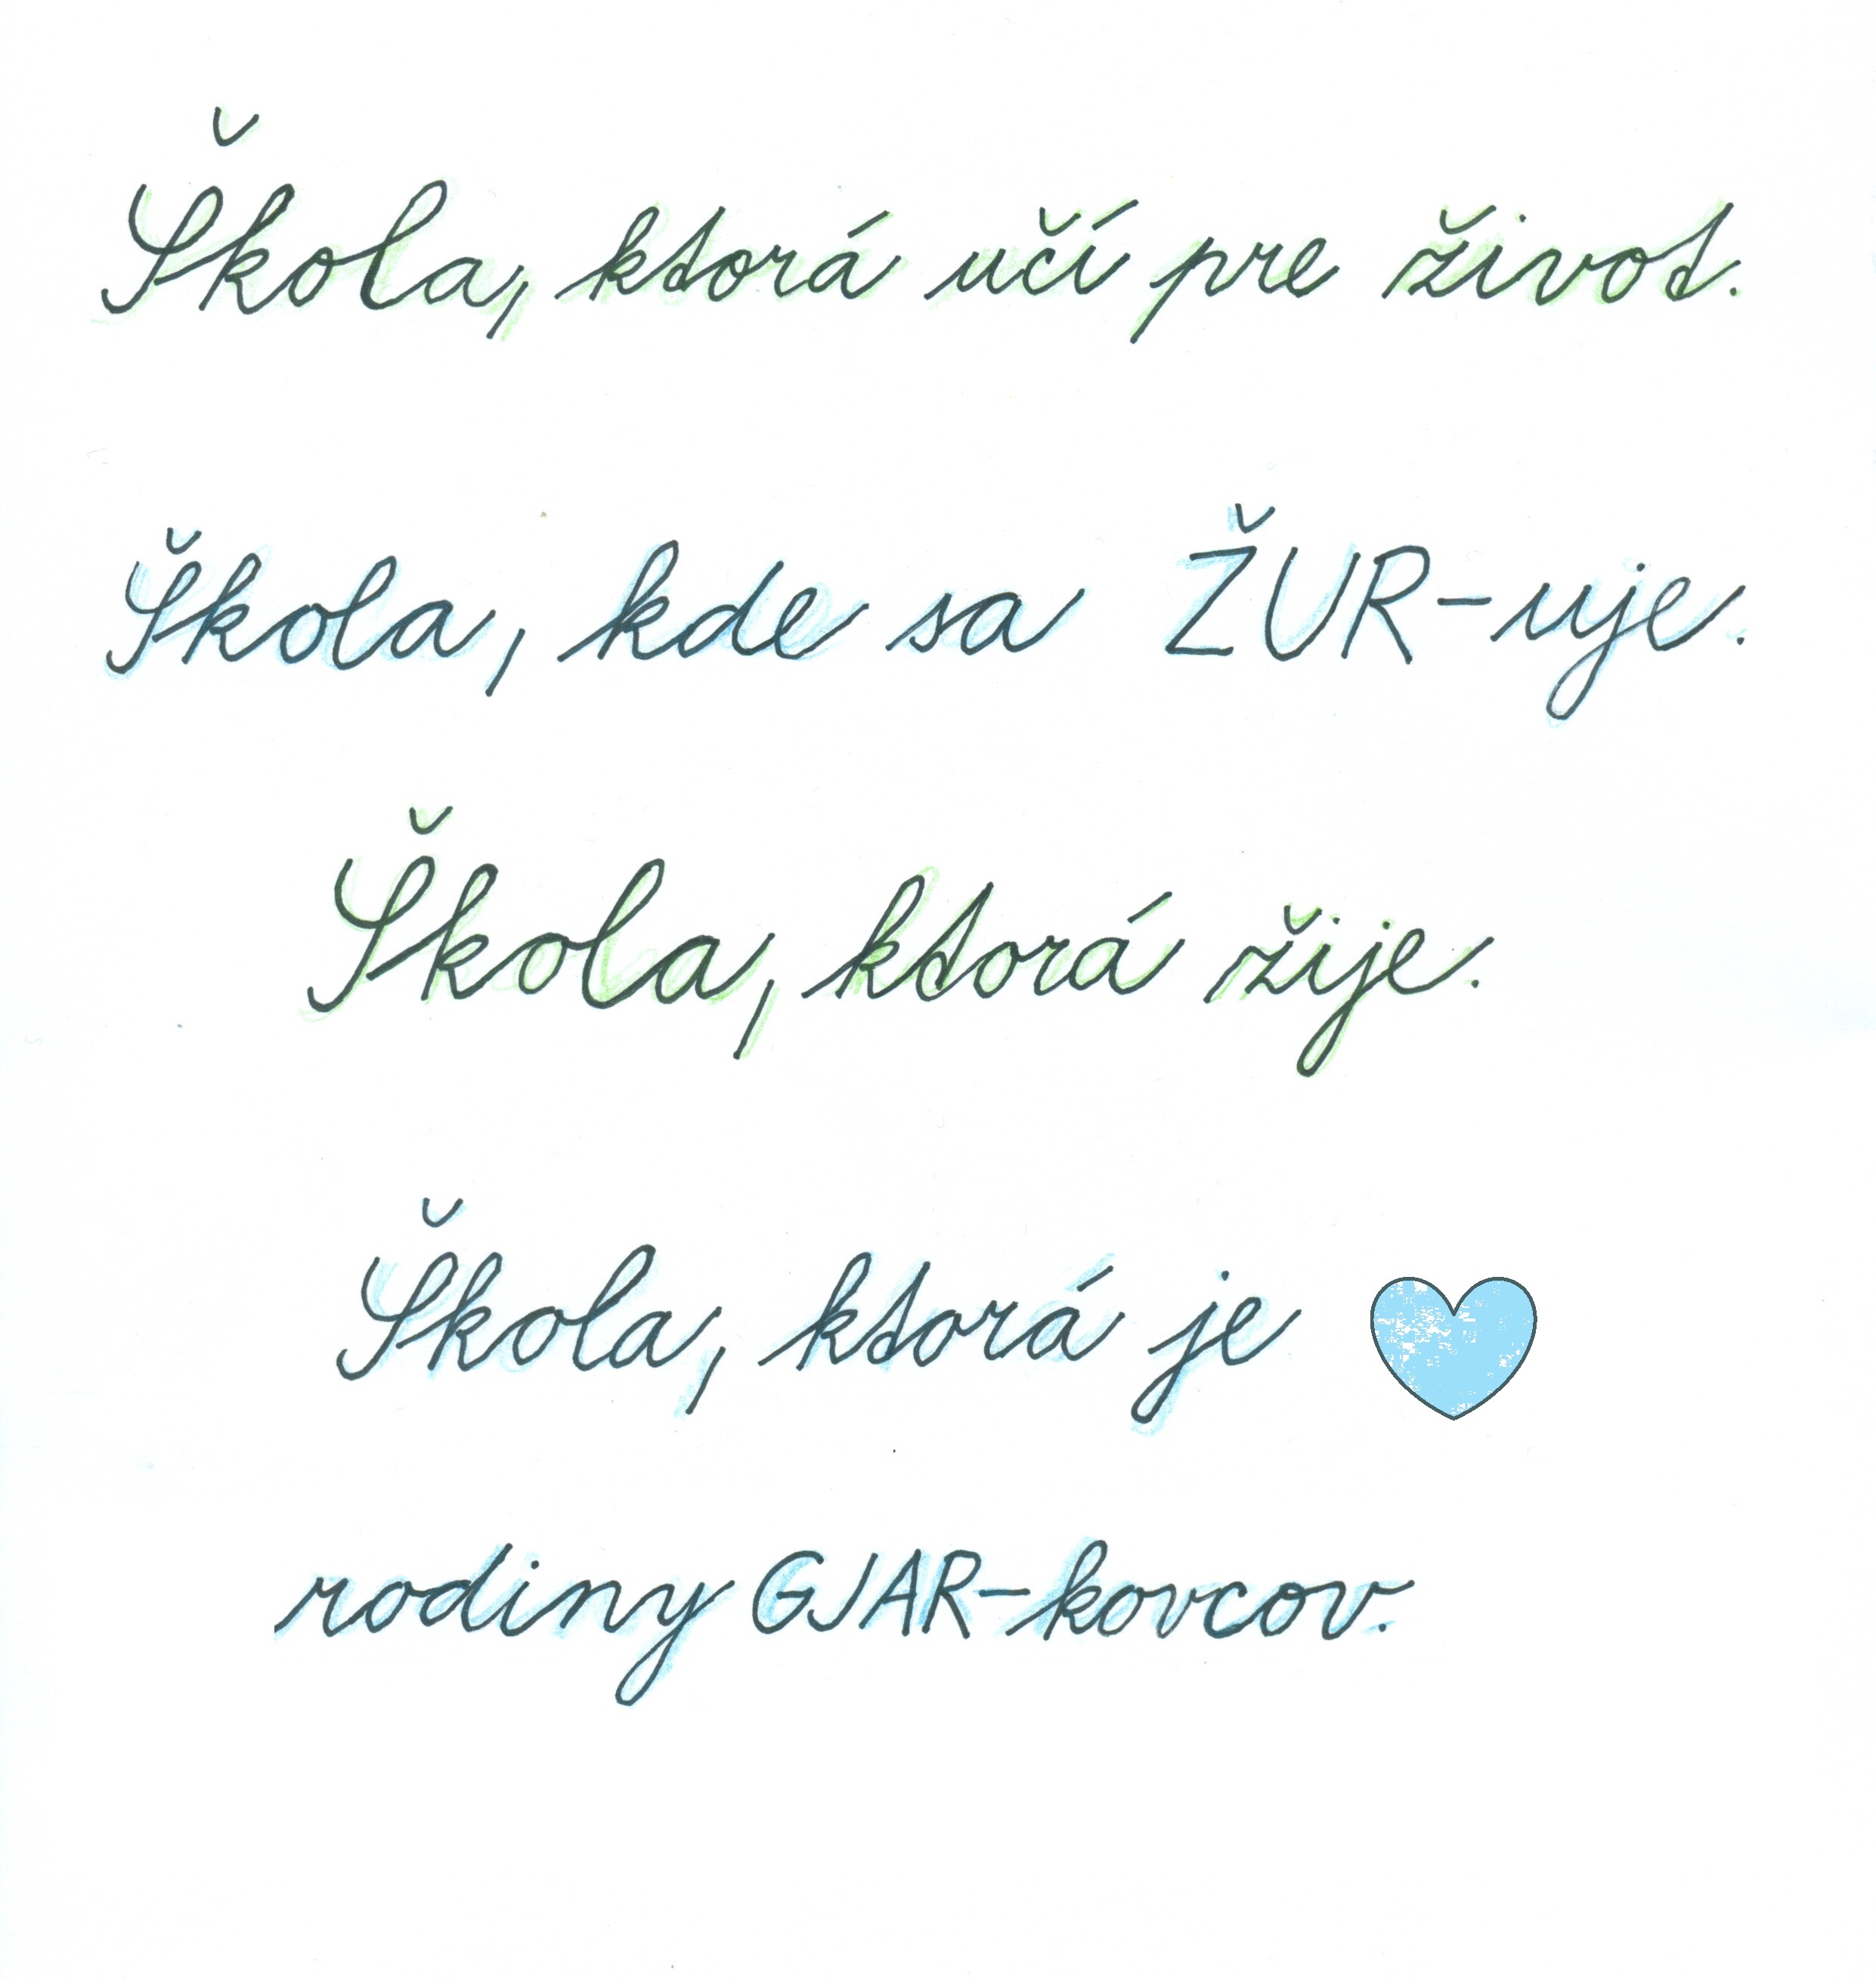 Škola, ktorá učí pre život.
Škola, kde sa ŽUR-uje.
Škola, ktorá žije.
Škola, ktorá je
rodiny GJAR-kovcov.